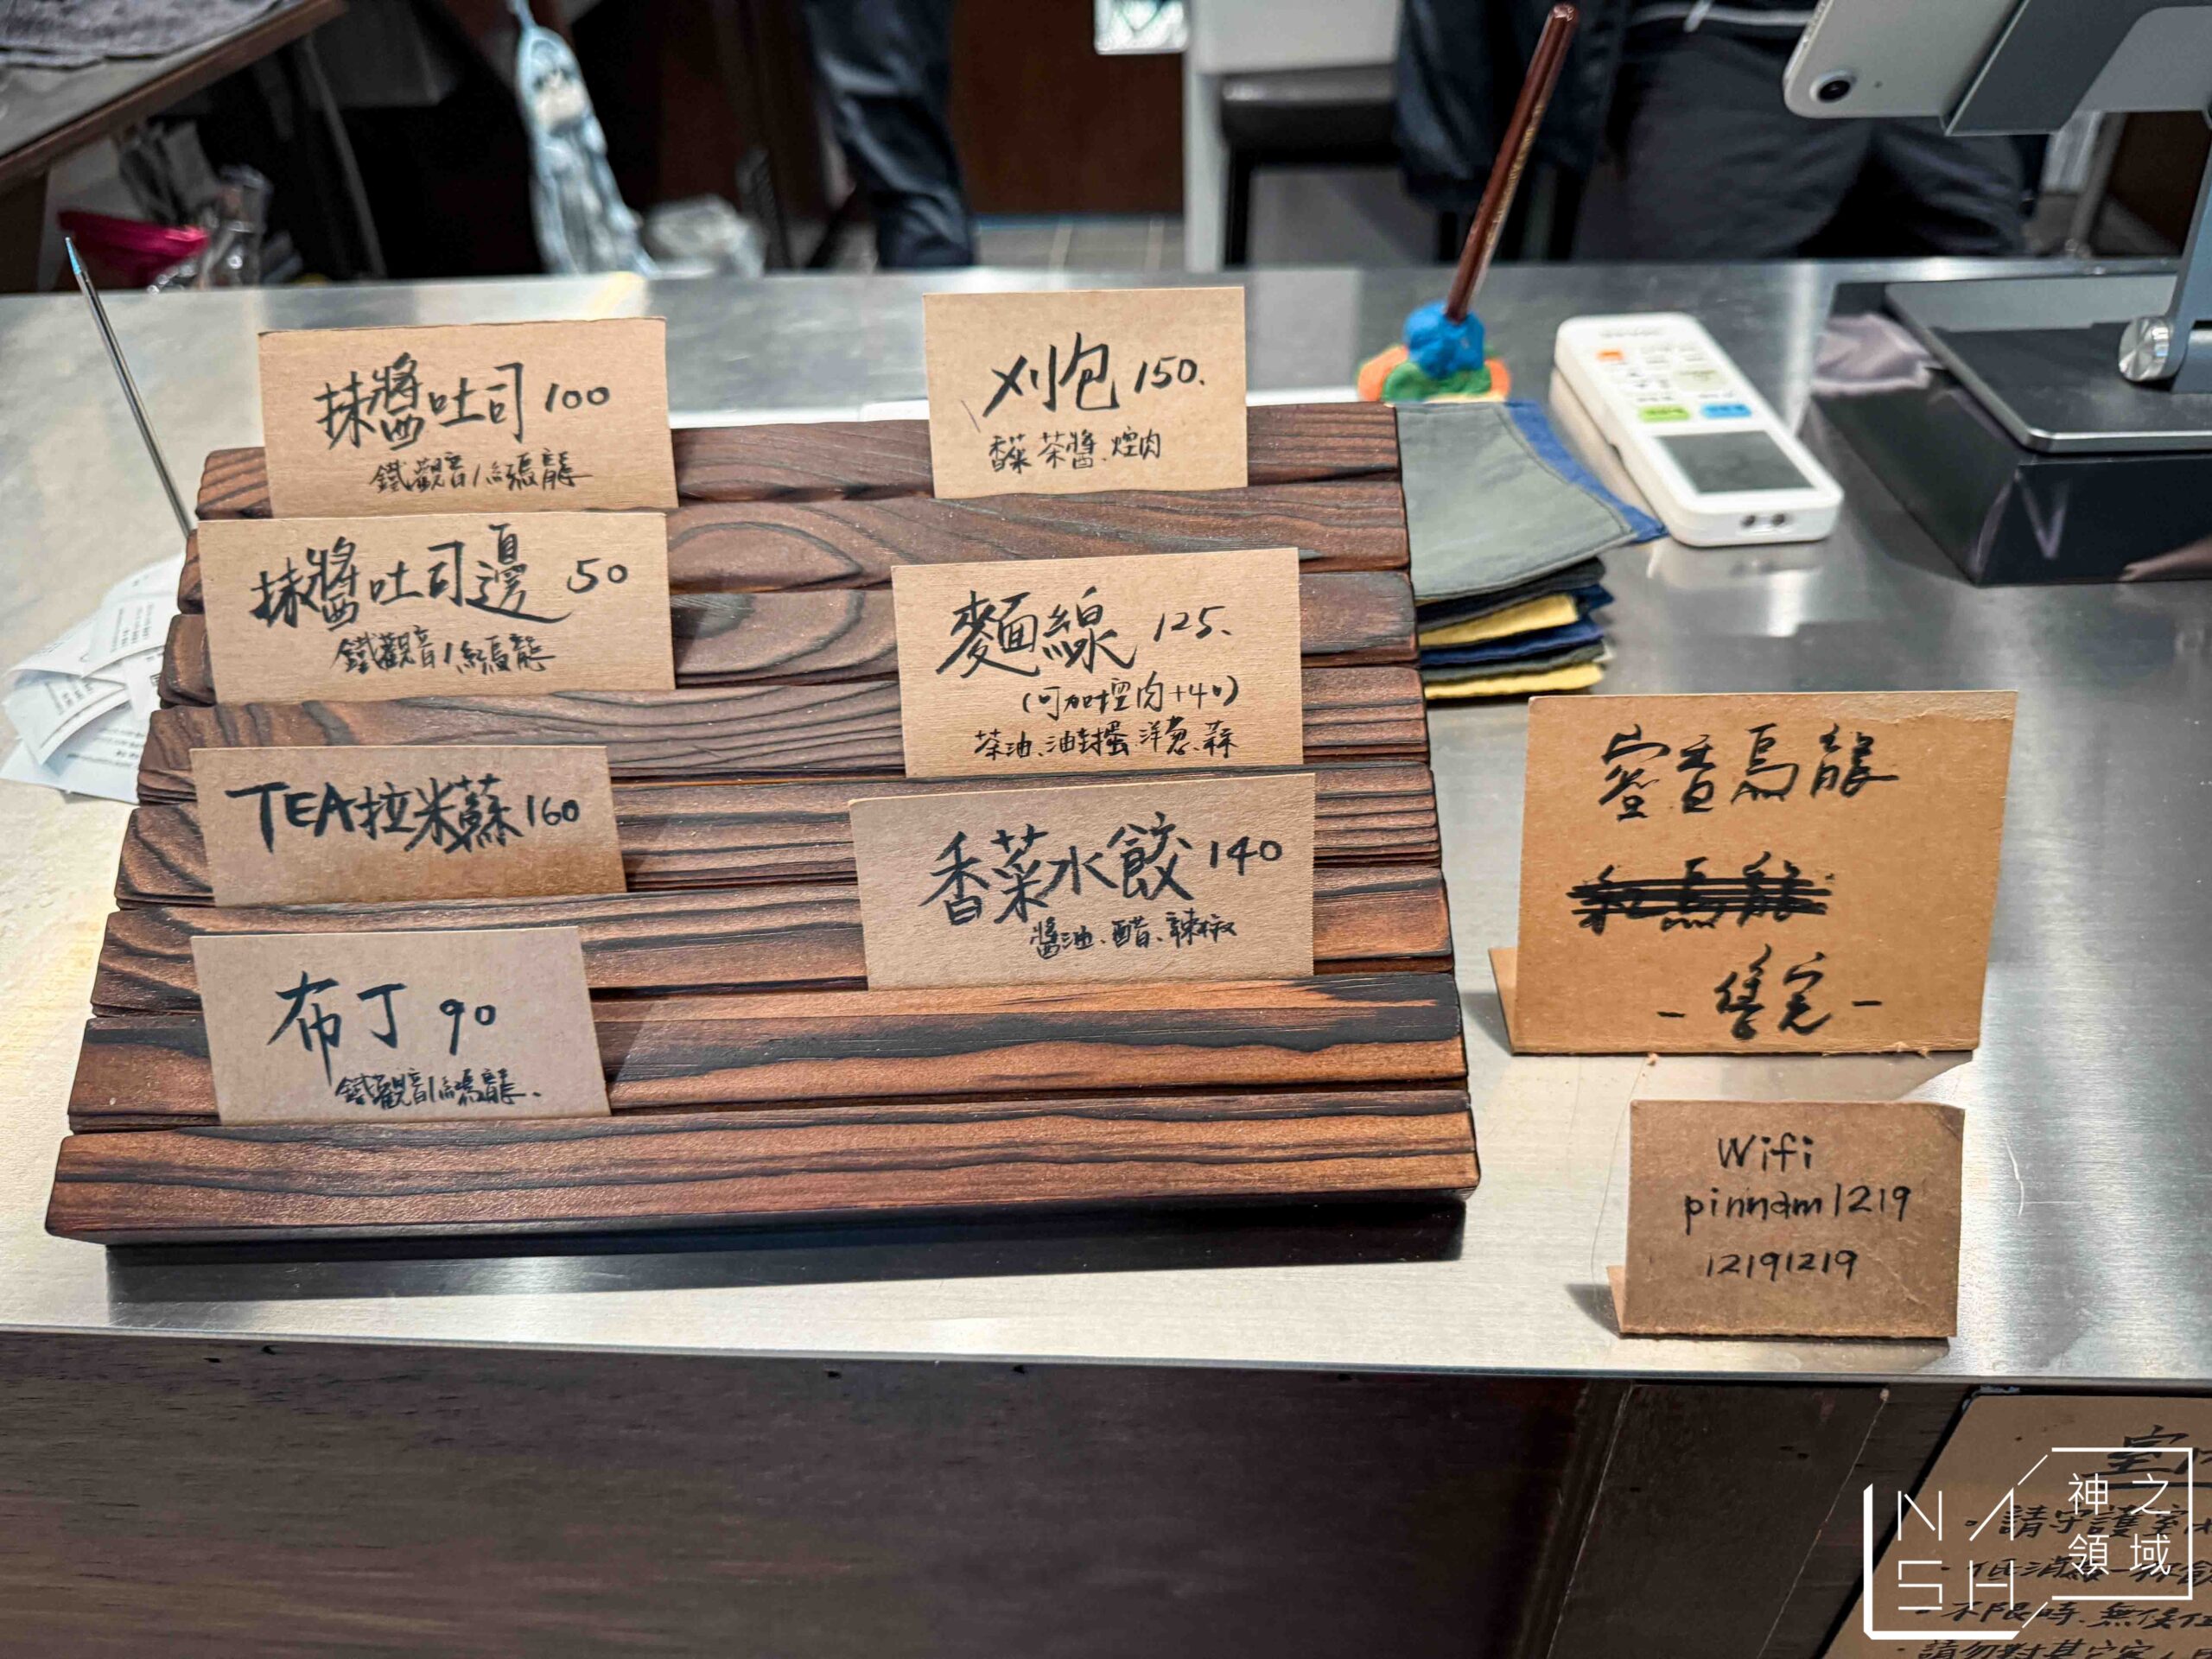 抹醬吐司 100
鐵觀音/紅烏龍
抹醬吐司邊 50
鐵觀音/紅烏龍
TEA拉米蘇 160
布丁 90
鐵觀音/紅烏龍.
刈包 150.
香菜 茶醬.焢肉
麵線 125.
(可加控肉+40)
茶油、油封蛋.洋蔥.蒜
香菜水餃 140
醬油、醋、辣椒
蜜香烏龍
紅烏龍
- 售完 -
Wifi
pinnam1219
12191219
請守護室
低消
不限時.無
請勿對其它客人
NASH
神之領域